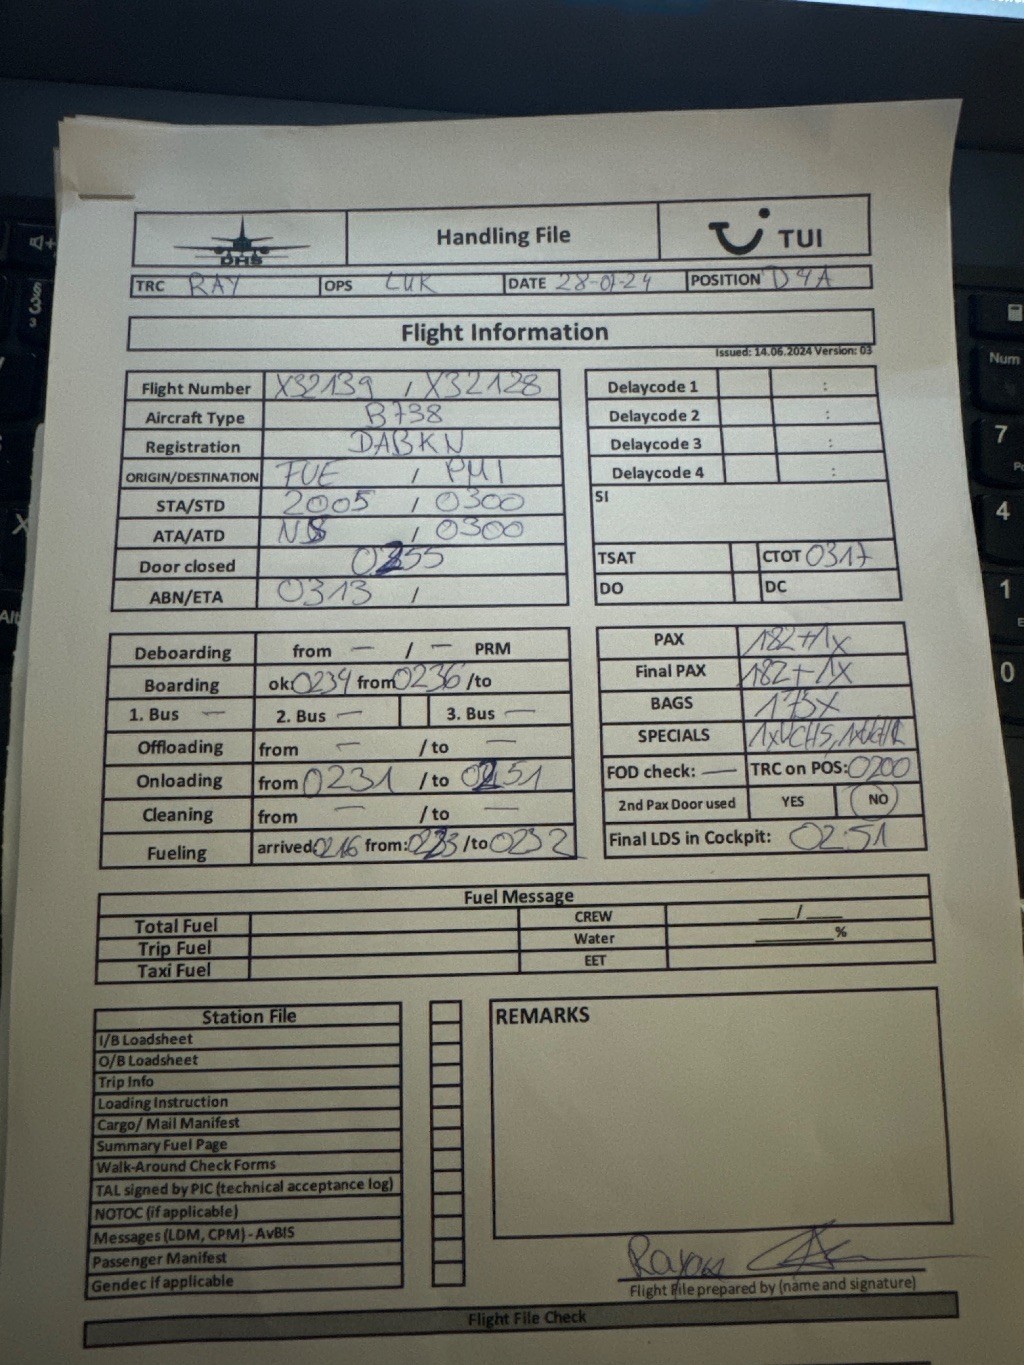 DHS
Handling File
TUI
TRC RAY OPS LUK DATE 28-07-24 POSITION D4A
Flight Information
Issued: 14.06.2024 Version: 03
Flight Number X32139 / X32128
Aircraft Type B738
Registration DABKN
ORIGIN/DESTINATION FUE / PMI
STA/STD 2005 / 0300
ATA/ATD NS / 0300
Door closed 0255
ABN/ETA 0313 /
Delaycode 1 :
Delaycode 2 :
Delaycode 3 :
Delaycode 4 :
SI
TSAT CTOT 0317
DO DC
Deboarding from — / — PRM
Boarding ok: 0234 from 0236 /to
1. Bus — 2. Bus — 3. Bus —
Offloading from — / to —
Onloading from 0231 / to 0251
Cleaning from — / to —
Fueling arrived: 0216 from: 0223 /to 0232
PAX 182+1x
Final PAX 182+1x
BAGS 173x
SPECIALS 1xWCHS,
FOD check: — TRC on POS: 0200
2nd Pax Door used YES NO
Final LDS in Cockpit: 02:51
Fuel Message
Total Fuel CREW ___/___
Trip Fuel Water ______%
Taxi Fuel EET
Station File
I/B Loadsheet
O/B Loadsheet
Trip Info
Loading Instruction
Cargo/ Mail Manifest
Summary Fuel Page
Walk-Around Check Forms
TAL signed by PIC (technical acceptance log)
NOTOC (if applicable)
Messages (LDM, CPM) - AvBIS
Passenger Manifest
Gendec if applicable
REMARKS
Flight File prepared by (name and signature)
Flight File Check
Num
7
4
1
0